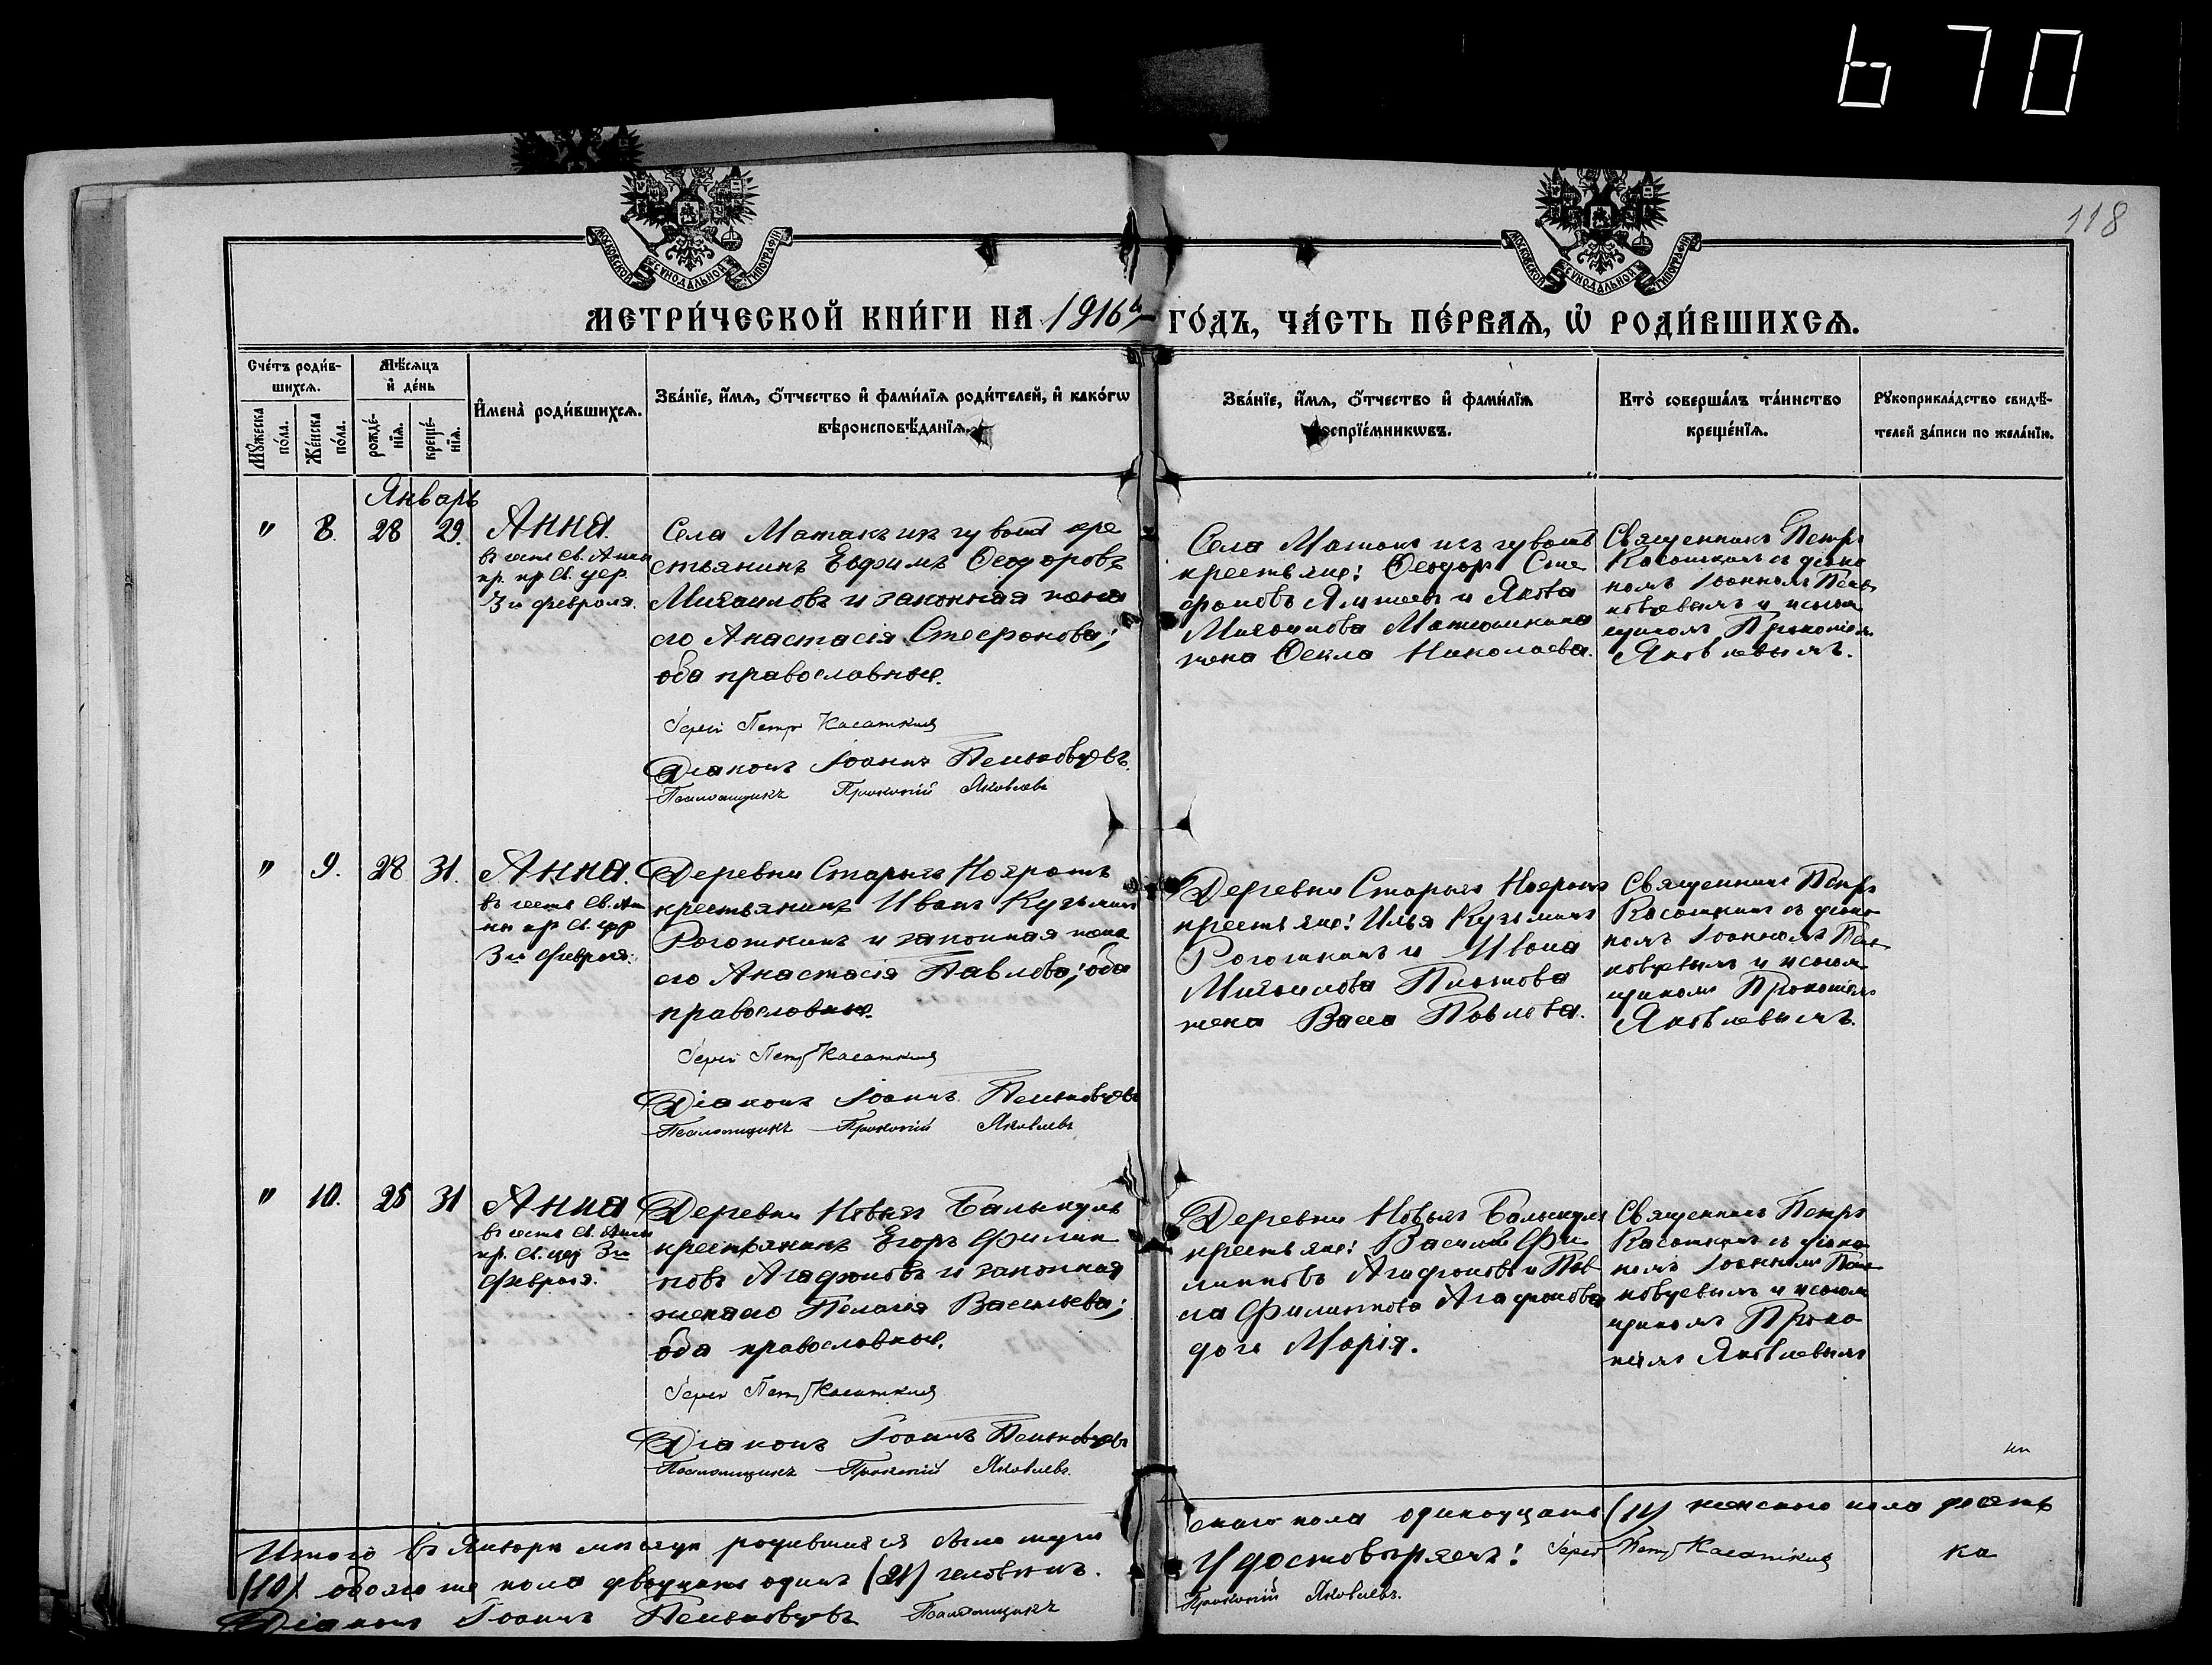 670
118
МОСКОВСКОЙ СѴНОДАЛЬНОЙ ТИПОГРАФІИ
МОСКОВСКОЙ СѴНОДАЛЬНОЙ ТИПОГРАФІИ
МЕТРИ́ЧЕСКОЙ КНИ́ГИ НА 1916й ГО́ДЪ, ЧА́СТЬ ПЕ́РВАѦ, Ѡ҆ РОДИ́ВШИХСѦ.
Сче́тъ роди́в-
шихсѧ.
Мѣ́сѧцъ
и҆ де́нь
Мꙋ́жеска
по́ла.
Же́нска
по́ла.
рожде́-
нїѧ.
креще́-
нїѧ.
И҆мена̀ роди́вшихсѧ.
Зва́нїе, и҆́мѧ, ѻ҆́тчество и҆ фами́лїѧ роди́телей, и҆ како́гѡ
вѣроисповѣ́данїѧ.
Зва́нїе, и҆́мѧ, ѻ҆́тчество и҆ фами́лїѧ
воспрїе́мникѡвъ.
Кто̀ соверша́лъ та́инство
креще́нїѧ.
Рꙋкоприкла́дство свидѣ́-
телей за́писи по жела́нїю.
Январь
" 8. 28 29. Анна.
въ честь Св. Анны
пр. пр. Св. цер.
3 и февраля.
Села Матакъ кре
стьянинъ Евфимъ Ѳеодоровъ
Михаиловъ и законная жена
его Анастасія Стефанова;
оба православные.
Іерей Петръ Касаткинъ
Діаконъ Іоаннъ Пеньковцевъ
Псаломщикъ Прокопій Яковлевъ
Села Матакъ
крестьяне: Ѳеодоръ Сте
фановъ и Якова
Михаилова
жена Ѳекла Николаева.
Священникъ Петръ
Касаткинъ съ діако
номъ Іоанномъ Пень
ковцевымъ и псалом
щикомъ Прокопіемъ
Яковлевымъ.
" 9. 28 31. Анна.
въ честь Св. Ан
ны пр. Св. цер
3 и Февраля.
Деревни Старыхъ
крестьянинъ Иванъ Кузьминъ
Рогожкинъ и законная жена
его Анастасія Павлова; оба
православные.
Іерей Петръ Касаткинъ
Діаконъ Іоаннъ Пеньковцевъ
Псаломщикъ Прокопій Яковлевъ
Деревни Старыхъ
крестьяне: Илья Кузьминъ
Рогожкинъ и Ивана
Михаилова
жена Васса Павлова.
Священникъ Петръ
Касаткинъ съ діако
номъ Іоанномъ Пень
ковцевымъ и псалом
щикомъ Прокопіемъ
Яковлевымъ.
" 10. 25 31 Анна
въ честь Св. Анны
пр. Св. цер 3 и
Февраля.
Деревни Новыхъ
крестьянинъ Егоръ Филип
повъ Агафоновъ и законная
жена его Пелагія Васильева;
оба православные.
Іерей Петръ Касаткинъ
Діаконъ Іоаннъ Пеньковцевъ
Псаломщикъ Прокопій Яковлевъ.
Деревни Новыхъ
крестьяне: Василій Фи
липповъ Агафоновъ и Пав
ла Филиппова Агафонова
дочь Марія.
Священникъ Петръ
Касаткинъ съ діако
номъ Іоанномъ Пень
ковцевымъ и псалом
щикомъ Проко
піемъ Яковлевымъ
Итого въ Январѣ мѣсяцѣ родившихся было муже
скаго пола одиннадцать (11) женскаго пола десять
(10) обоего же пола двадцать одинъ (21) человѣкъ.
Удостовѣряемъ: Іерей Петръ Касаткинъ
Діаконъ Іоаннъ Пеньковцевъ Псаломщикъ
Прокопій Яковлевъ.